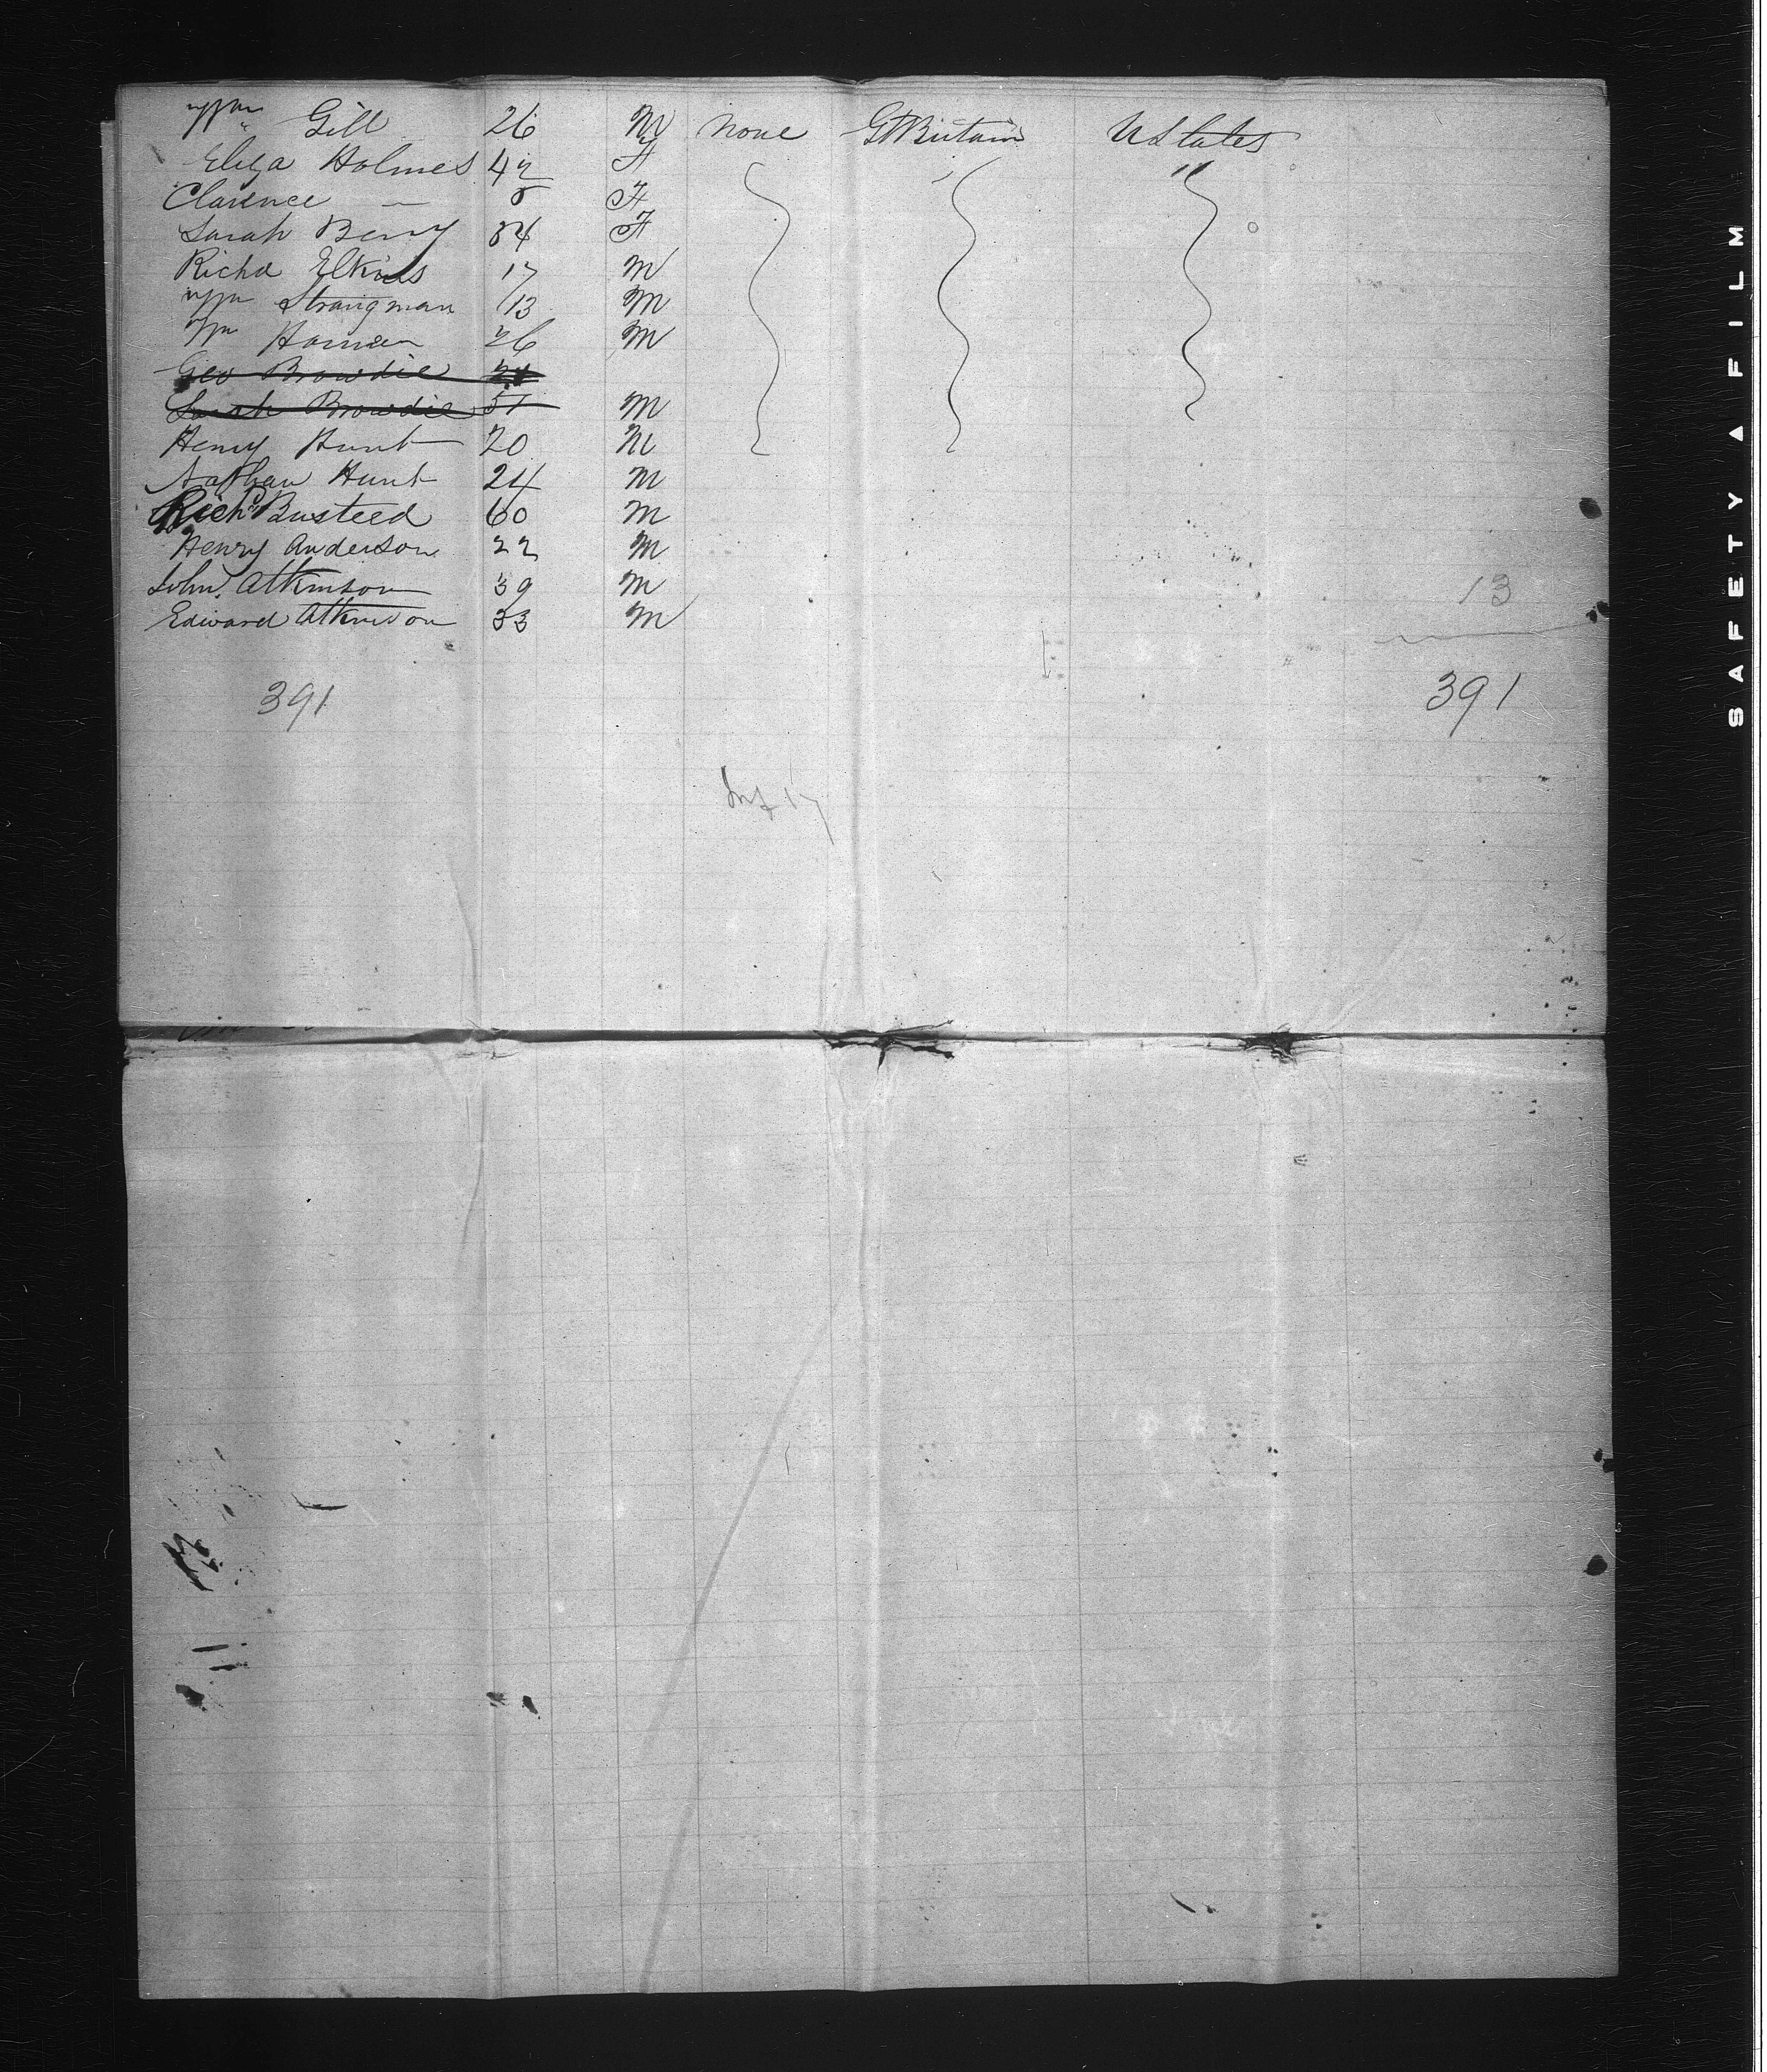 Wm Gill 26 M None Gt Britain U States
Eliza Holmes 42 F " "
Clarence — 8 F
Sarah Berry 34 F
Richd Elkins 17 M
Wm Strangman 13 M
Wm Homan 26 M
Geo Browdie
Sarah Browdie 51 M
Henry Hunt 20 M
Nathan Hunt 24 M
Richd Busteed 60 M
Henry Anderson 22 M
John Atkinson 39 M 13
Edward Atkinson 33 M
391 391
Inf 17
SAFETY ▲ FILM